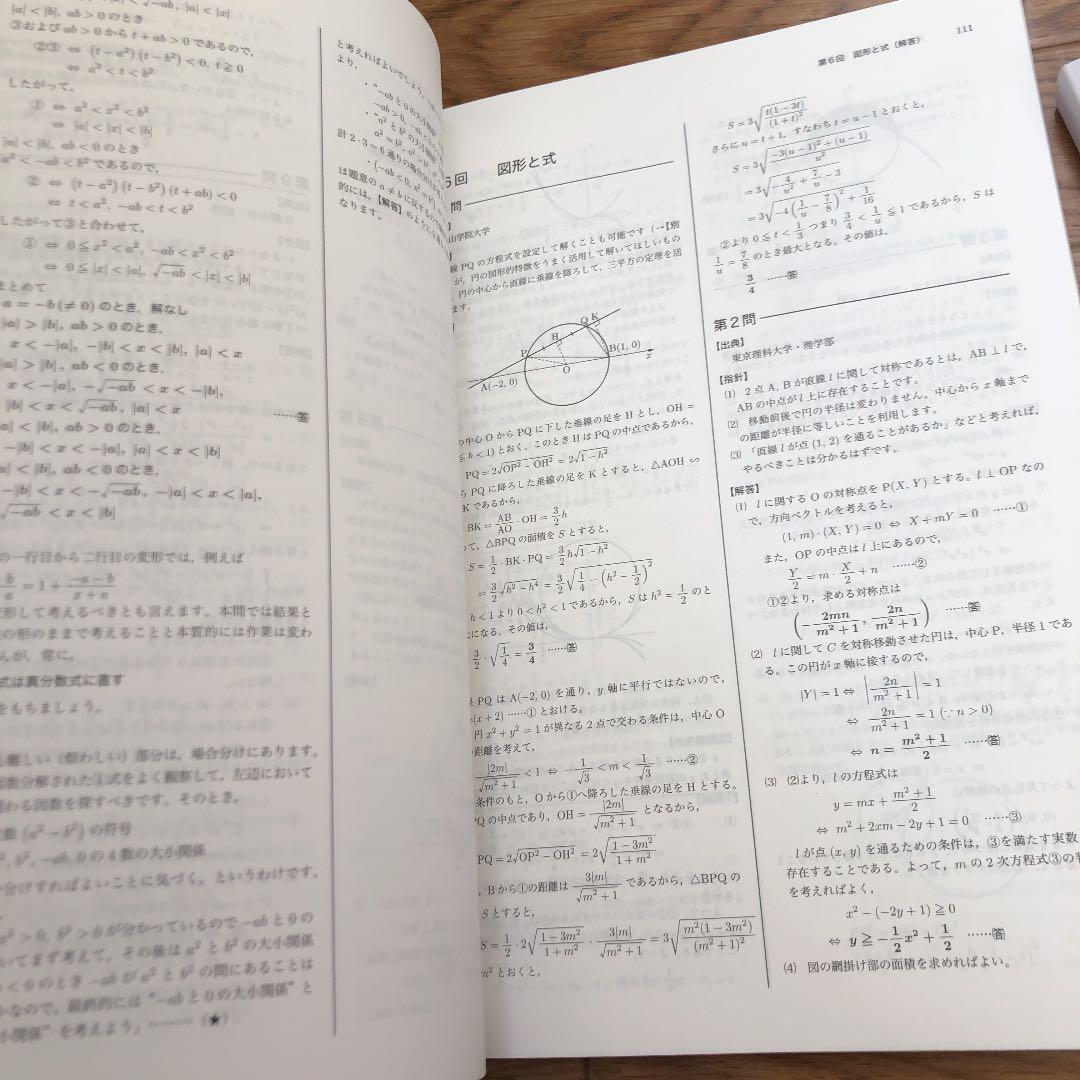 |a| < |b|, ab > 0 のとき
③および ab > 0 から t + ab > 0 であるので,
②③ ⇔ (t − a²)(t − b²) < 0, t ≧ 0
⇔ a² < t < b²
したがって,
① ⇔ a² < x² < b²
⇔ |a| < |x| < |b|
|a| < |b|, ab < 0 のとき
a² < −ab < b² であるので,
② ⇔ (t − a²)(t − b²)(t + ab) < 0
⇔ t < a², −ab < t < b²
したがって③と合わせて,
① ⇔ 0 ≦ x² < a², −ab < x² < b²
⇔ 0 ≦ |x| < |a|, √−ab < |x| < |b|
まとめて
a = −b(≠ 0) のとき, 解なし
|a| > |b|, ab > 0 のとき,
x < −|a|, −|b| < x < |b|, |a| < x
|a| > |b|, ab < 0 のとき,
x < −|a|, −√−ab < x < −|b|,
|b| < x < √−ab, |a| < x ……答
|a| < |b|, ab > 0 のとき,
−|b| < x < −|a|, |a| < x < |b|
|a| < |b|, ab < 0 のとき,
−|b| < x < −√−ab, −|a| < x < |a|,
√−ab < x < |b|
の一行目から二行目の変形では, 例えば
= 1 + (−a − b)/(x + a)
変形して考えるべきとも言えます. 本問では結果と
の形のままで考えることと本質的には作業は変わ
んが, 常に,
式は真分数式に直す
をもちましょう.
難しい(煩わしい)部分は, 場合分けにあります.
因数分解された①式をよく観察して, 左辺において
変わる因数を探すべきです. そのとき,
数 (a² − b²) の符号
b², −ab, 0 の 4 数の大小関係
分けすればよいことに気づく, というわけです.
a² > 0, b² > 0 が分かっているので −ab と 0 の
いてまず考えて, その後は a² と b² の大小関係
< 0 のとき −ab が a² と b² の間にあることは
かなので, 最終的には “−ab と 0 の大小関係” と
小関係” を考えよう」……… (★)
と考えればよいでしょう.
より,
・“−ab と 0 の大小関係”
−ab > 0, −ab <
・“a² と b² の大小関係
計 2・3 = 6 通りの場合分け
・(−ab < 0, a²
は題意の a ≠ b に反するので
的には,【解答】のように
なります.
第9問
第6回 図形と式(解答) 111
6回 図形と式
問
山学院大学
線 PQ の方程式を設定して解くことも可能です(→【別
が, 円の図形的特徴をうまく活用して解いてほしいもの
円の中心から直線に垂線を降ろして, 三平方の定理を活
ます.
Q K
H
P
B(1, 0)
x
O
A(−2, 0)
の中心 O から PQ に下した垂線の足を H とし, OH =
≦ h < 1) とおく. このとき H は PQ の中点であるから,
PQ = 2√(OP² − OH²) = 2√(1 − h²)
ら PQ に降ろした垂線の足を K とすると, △AOH ∽
K であるから,
BK = AB/AO · OH = 3/2 h
て, △BPQ の面積を S とすると,
S = 1/2 · BK · PQ = 3/2 h√(1 − h²)
= 3/2 √(h² − h⁴) = 3/2 √(1/4 − (h² − 1/2)²)
h < 1 より 0 < h² < 1 であるから, S は h² = 1/2 のと
になる. その値は,
3/2 · √(1/4) = 3/4 ……答
PQ は A(−2, 0) を通り, y 軸に平行ではないので,
(x + 2) ……① とおける.
円 x² + y² = 1 が異なる 2 点で交わる条件は, 中心 O
距離を考えて,
|2m|/√(m² + 1) < 1 ⇔ −1/√3 < m < 1/√3 ……②
条件のもと, O から①へ降ろした垂線の足を H とする.
PQ の中点であり, OH = |2m|/√(m² + 1) となるから,
PQ = 2√(OP² − OH²) = 2√((1 − 3m²)/(1 + m²))
, B から①の距離は 3|m|/√(m² + 1) であるから, △BPQ の
S とすると,
S = 1/2 · 2√((1 − 3m²)/(1 + m²)) · 3|m|/√(m² + 1) = 3√(m²(1 − 3m²)/(m² + 1)²)
m² とおくと,
S = 3√(t(1 − 3t)/(1 + t)²)
さらに u = t + 1, すなわち t = u − 1 とおくと,
S = 3√((−3(u − 1)² + (u − 1))/u²)
= 3√(−4/u² + 7/u − 3)
= 3√(−4(1/u − 7/8)² + 1/16)
②より 0 ≦ t < 1/3 つまり 3/4 < 1/u ≦ 1 であるから, S は
1/u = 7/8 のとき最大となる. その値は,
3/4 ……答
第2問
【出典】
東京理科大学・理学部
【指針】
(1) 2 点 A, B が直線 l に関して対称であるとは, AB ⊥ l で,
AB の中点が l 上に存在することです.
(2) 移動前後で円の半径は変わりません. 中心から x 軸まで
の距離が半径に等しいことを利用します.
(3) 「直線 l が点 (1, 2) を通ることがあるか」などと考えれば,
やるべきことは分かるはずです.
【解答】
(1) l に関する O の対称点を P(X, Y) とする. l ⊥ OP なの
で, 方向ベクトルを考えると,
(1, m) · (X, Y) = 0 ⇔ X + mY = 0 ……①
また, OP の中点は l 上にあるので,
Y/2 = m · X/2 + n ……②
①②より, 求める対称点は
(−2mn/(m² + 1), 2n/(m² + 1)) ……答
(2) l に関して C を対称移動させた円は, 中心 P, 半径 1 であ
る. この円が x 軸に接するので,
|Y| = 1 ⇔ |2n/(m² + 1)| = 1
⇔ 2n/(m² + 1) = 1 (∵ n > 0)
⇔ n = (m² + 1)/2 ……答
(3) (2)より, l の方程式は
y = mx + (m² + 1)/2
⇔ m² + 2xm − 2y + 1 = 0 ……③
l が点 (x, y) を通るための条件は, ③を満たす実数
存在することである. よって, m の 2 次方程式③の判
を考えればよく,
x² − (−2y + 1) ≧ 0
⇔ y ≧ −1/2 x² + 1/2 ……答
(4) 図の網掛け部の面積を求めればよい.